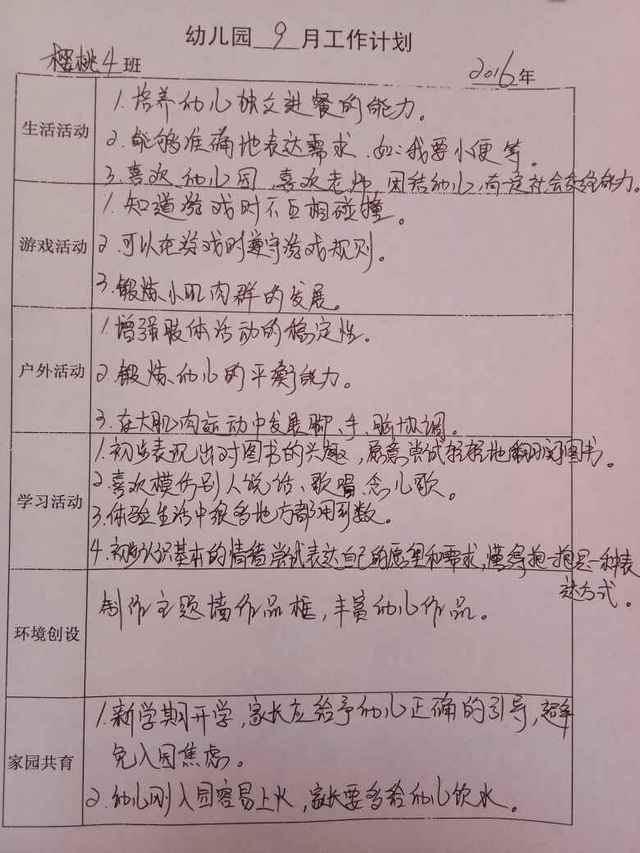 幼儿园 9 月工作计划
樱桃4班 2016年
生活活动
1.培养幼儿独立进餐的能力。
2.能够准确地表达需求,如:我要小便等。
3.喜欢幼儿园,喜欢老师,团结幼儿,有一定社会交往能力。
游戏活动
1.知道游戏时不互相碰撞。
2.可以在游戏时遵守游戏规则。
3.锻炼小肌肉群的发展。
户外活动
1.增强肢体活动的稳定性。
2.锻炼幼儿的平衡能力。
3.在大肌肉运动中发展脚、手、脑协调。
学习活动
1.初步表现出对图书的兴趣,愿意尝试轻轻地翻阅图书。
2.喜欢模仿别人说话、歌唱、念儿歌。
3.体验生活中很多地方都用到数。
4.初步认识基本的情绪尝试表达自己的愿望和需求,懂得抱一抱是一种表
达方式。
环境创设
制作主题墙作品框,丰富幼儿作品。
家园共育
1.新学期开学,家长应给予幼儿正确的引导,
免入园焦虑。
2.幼儿刚入园容易上火,家长要多给幼儿饮水。